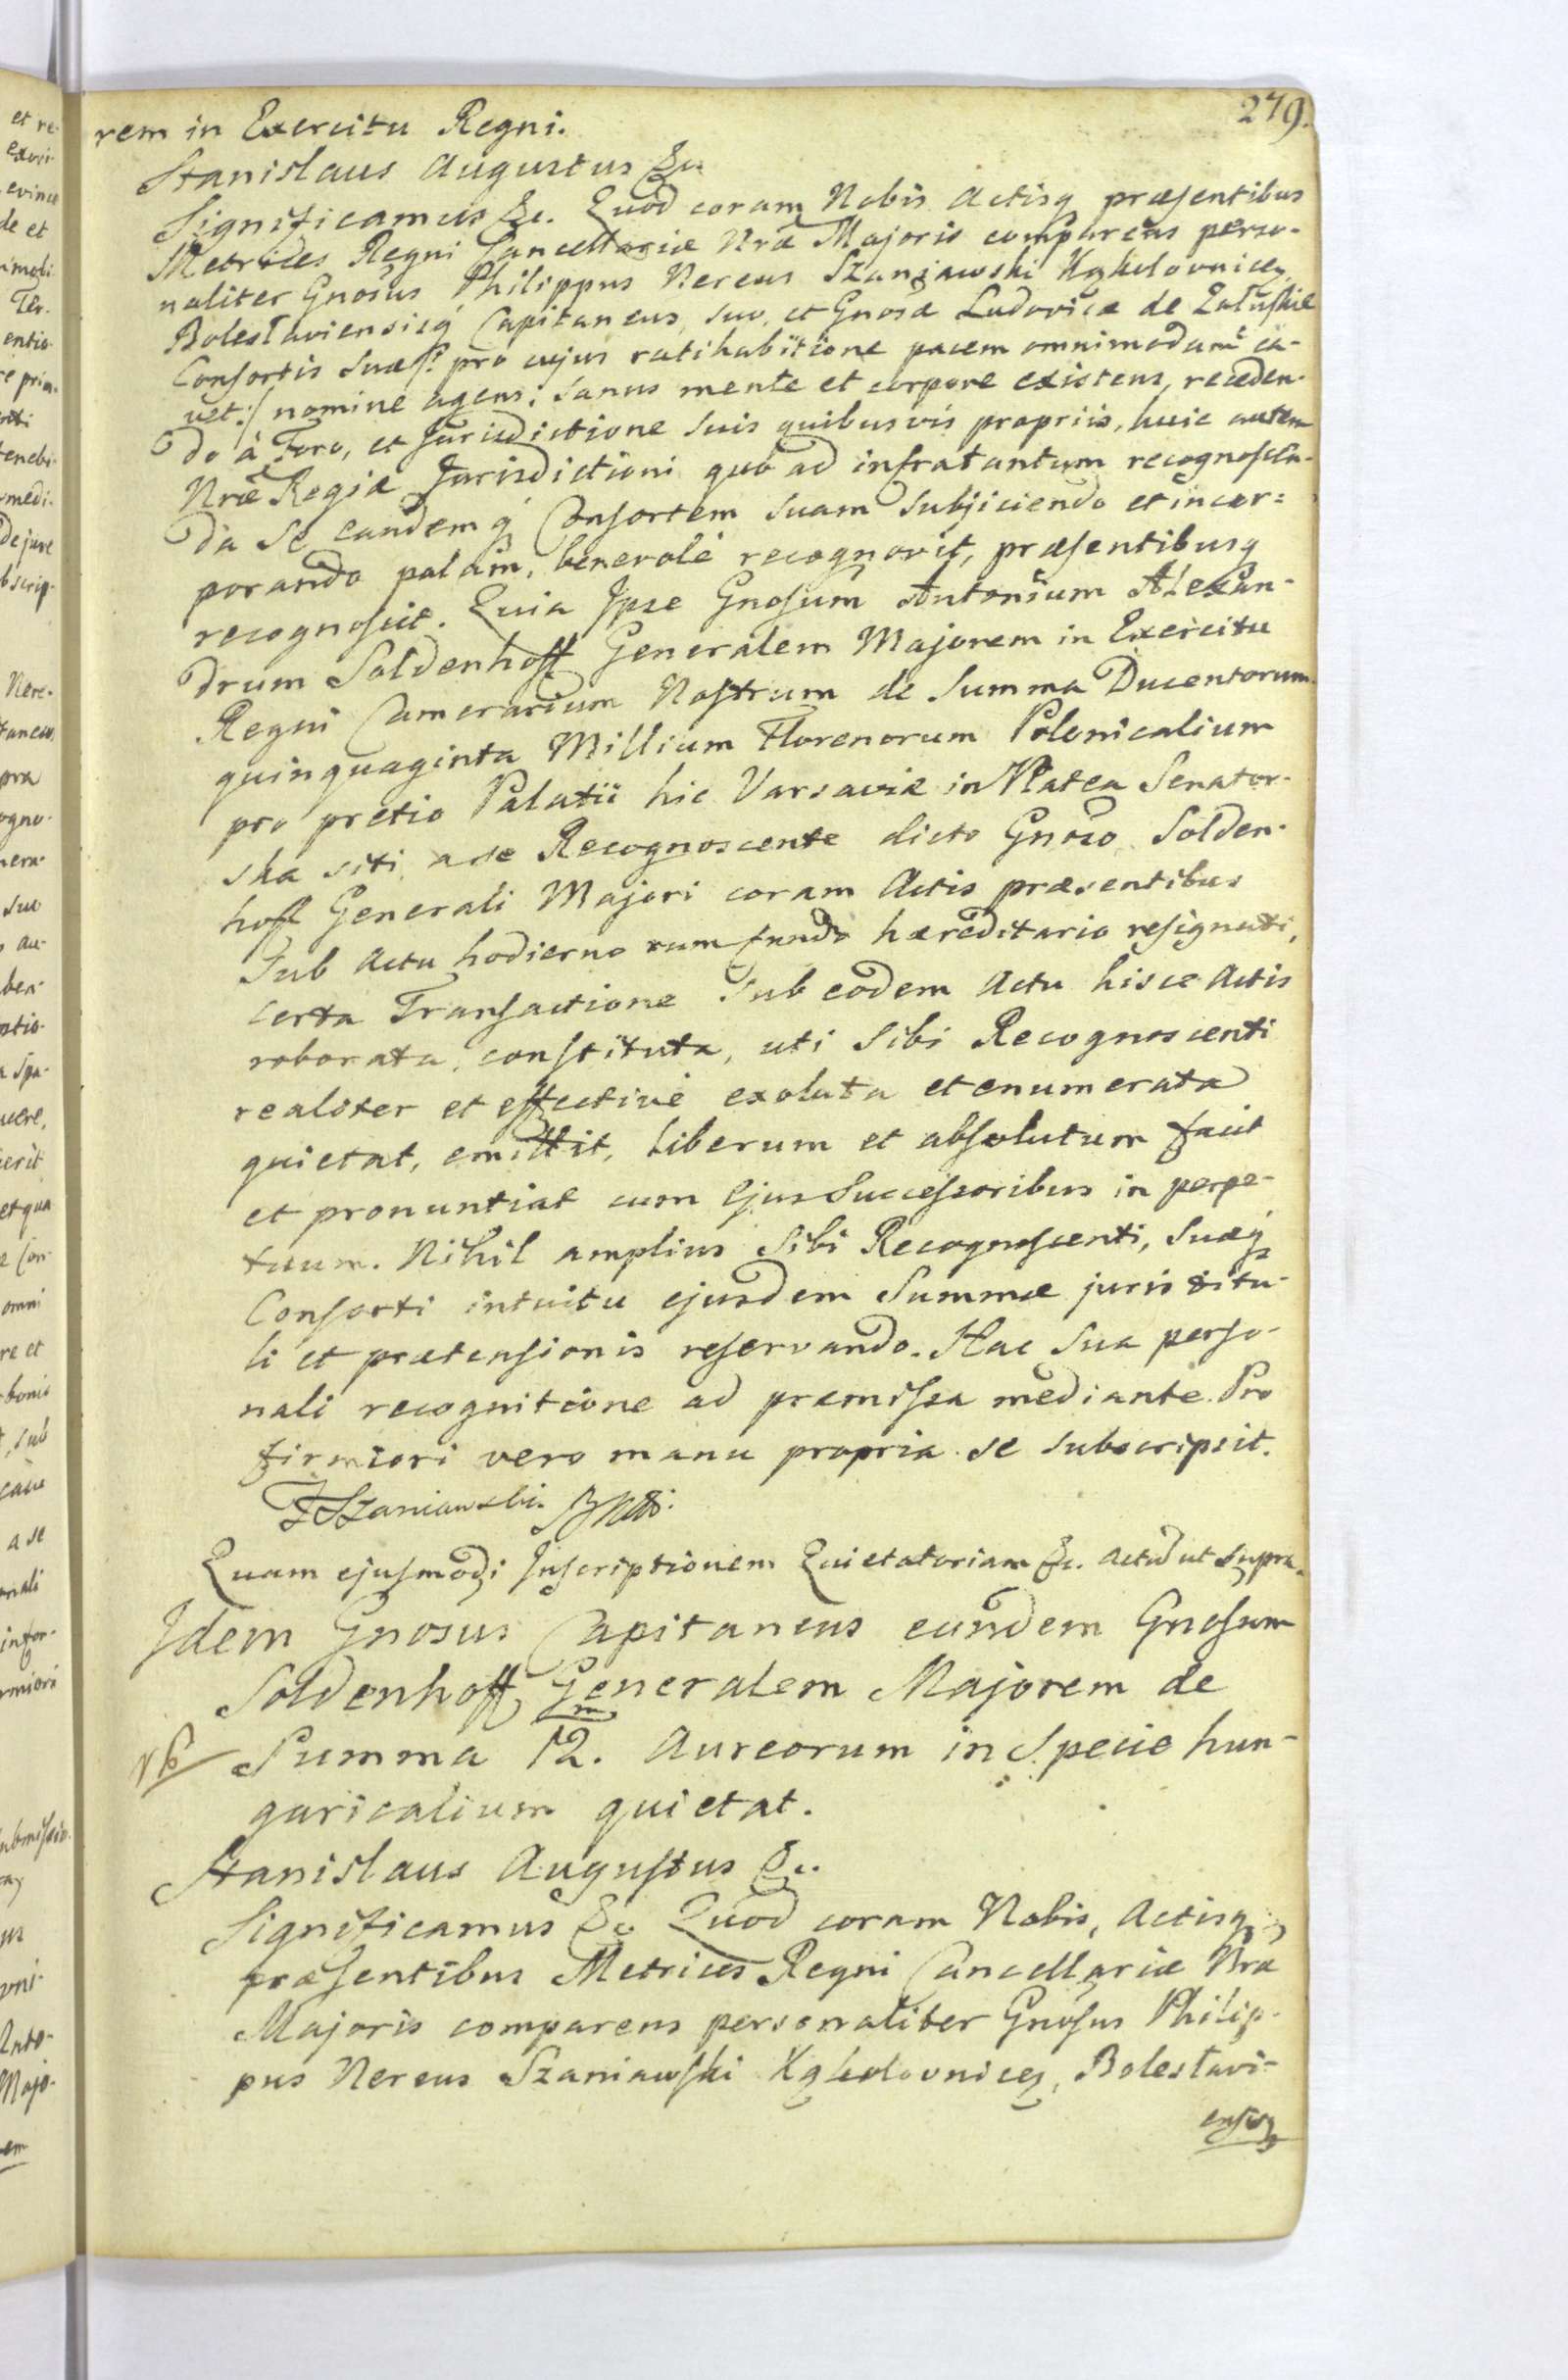 279.
rem in Exercitu Regni.
Stanislaus Augustus &c.
Significamus &c. Quod coram Nobis Actisq præsentibus
Metrices Regni Cancellariæ Nræ Majoris comparens perso-
naliter Gnosus Philippus Nereus Szaniawski Kąkolovnicen,
Boleslaviensisq Capitaneus, suo, et Gnosæ Ludovicæ de Załuskie
Consortis suæ /: pro cujus ratihabitione pacem omnimodam ca-
vet :/ nomine agens; sanus mente et corpore existens, receden-
do à Foro, et Jurisdictione suis quibusvis propriis, huic autem
Nræ Regiæ Jurisdictioni quo ad infra tantum recognoscen-
da se eandemq Consortem suam subjiciendo et incor=
porando palam, benevolè recognovit, præsentibusq
recognoscit. Quia Ipse Gnosum Antonium Alexan-
drum Soldenhoff Generalem Majorem in Exercitu
Regni Camerarium Nostrum de Summa Ducentorum
quinquaginta Millium Florenorum Polonicalium
pro pretio Palatii hic Varsaviæ in Platea Senator-
ska siti, a se Recognoscente dicto Gnoso Solden-
hoff Generali Majori coram Actis præsentibus
Sub Actu hodierno cum fundo hæreditario resignati,
certa Transactione sub eodem Actu hisce Actis
roborata, constituta, uti sibi Recognoscenti
realiter et effectivè exoluta et enumerata
quietat, emittit, liberum et absolutum facit
et pronuntiat cum Ejus Successoribus in perpe-
tuum. Nihil amplius sibi Recognoscenti, suæq
Consorti intuitu ejusdem Summæ juris titu-
li et prætensionis reservando. Hac sua perso-
nali recognitione ad præmissa mediante. Pro
firmiori vero manu propria se subscripsit.
F Szaniawski
Quam ejusmodi Inscriptionem Quietatoriam &c. Actū ut supra.
Idem Gnosus Capitaneus eundem Gnosum
Soldenhoff Generalem Majorem de
NB Summa 12.m Aureorum in Specie hun-
garicalium quietat.
Stanislaus Augustus &c.
Significamus &c. Quod coram Nobis, Actisq
præsentibus Metrices Regni Cancellariæ Nræ
Majoris comparens personaliter Gnosus Philip-
pus Nereus Szaniawski Kąkolovnicen, Boleslavi-
ensisq